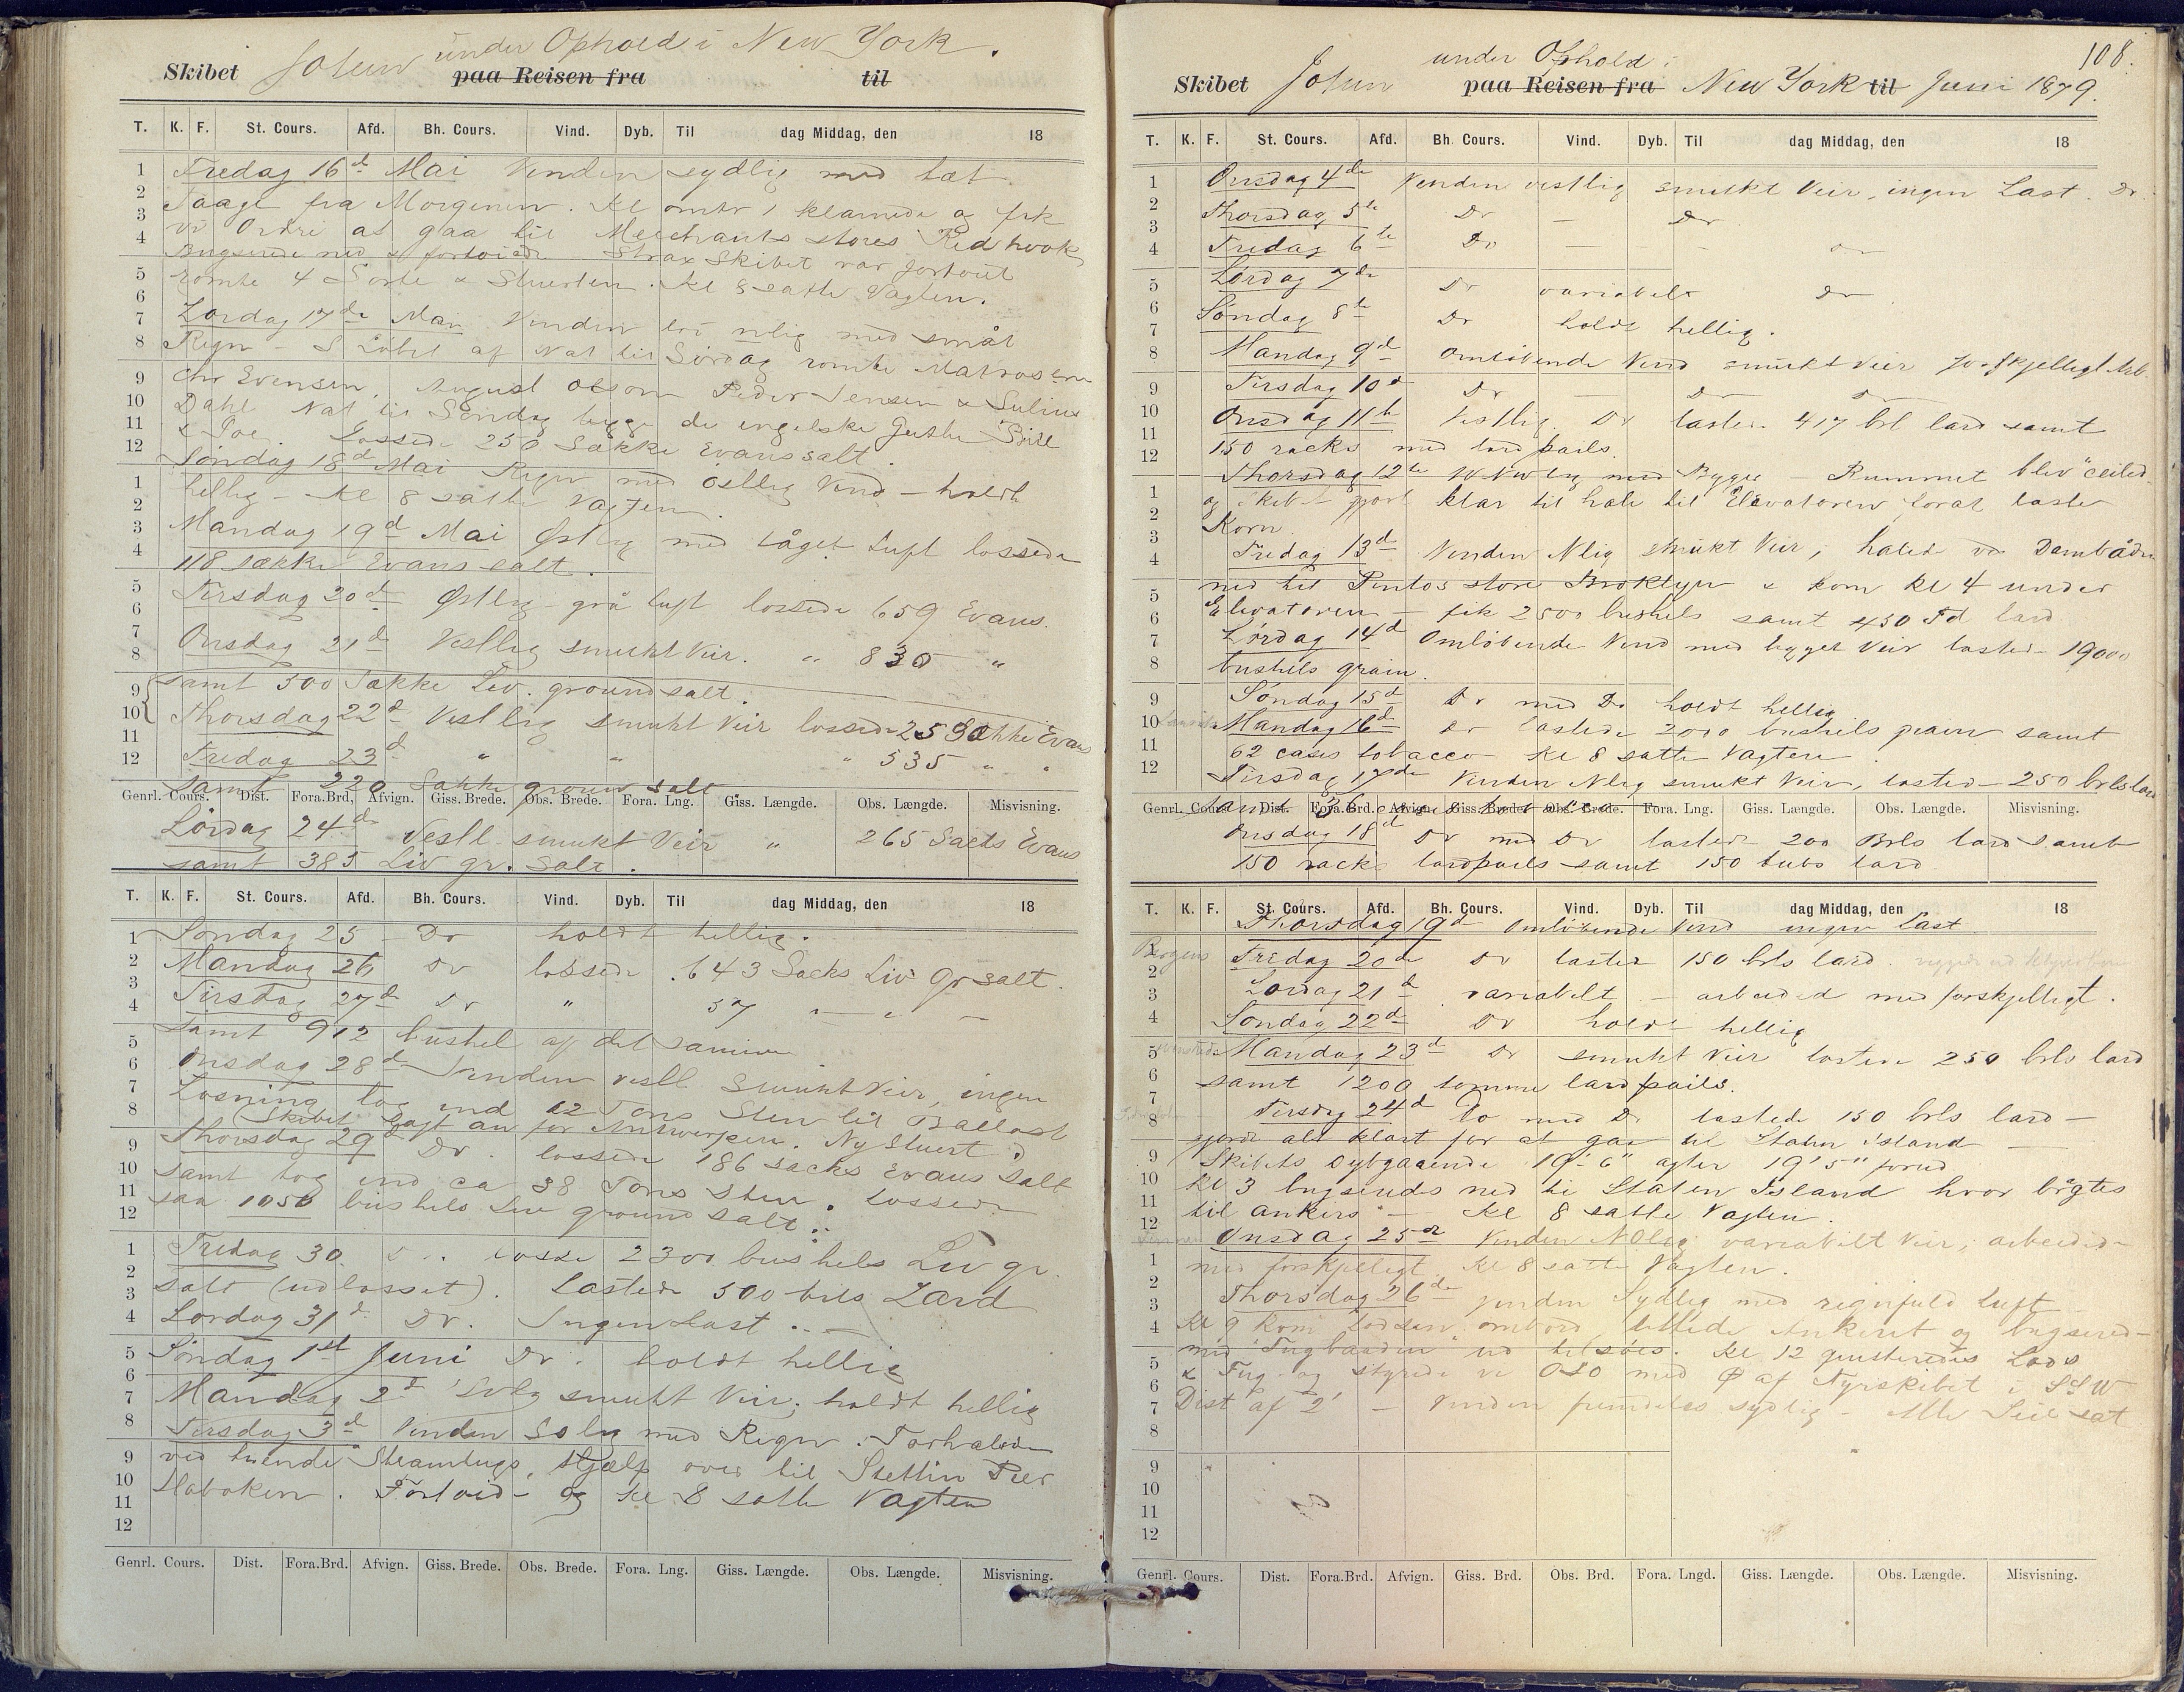 under Ophold i New York.
Skibet Jotun paa Reisen fra til
T. K. F. St. Cours. Afd. Bh. Cours. Vind. Dyb. Til dag Middag, den 18
1 Fredag 16d Mai Vinden sydlig med tæt
2 Taage fra Morgenen. Kl omtr 1 klarnede og fik
3 vi Ordre at gaa til Merchants stores Redhook
4 Bugserede ned & fortøiede. Strax Skibet var fortøiet
5 rømte 4 & Stuerten. Kl 8 satte Vagten.
6
7 Lørdag 17de Mai Vinden nlig med småt
8 Regn - I Løbet af Nat til Lørdag rømte Matroserne
9 Chr Evensen, August Olson Peder Jensen & Julius
10 Dahl Nat til Søndag de engelske Gutter Bill
11 & Joe. Lossede 250 Sække Evans salt.
12 Søndag 18d Mai Regn med østlig Vind - holdt
1 hellig - Kl 8 satte Vagten.
2
3 Mandag 19d Mai Østlig med tåget Luft lossede
4 118 sække Evans salt.
5 Tirsdag 20d Østlig grå luft lossede 659 Evans.
6
7 Onsdag 21d Vestlig smukt Veir. " 835 "
8
9 samt 500 Sække Liv. ground salt.
10 Thorsdag 22d Vestlig smukt Veir lossede Sække Evans
11
12 Fredag 23d " " " 535 " "
samt 220 Sække groun salt
Genrl. Cours. Dist. Fora.Brd. Afvign. Giss. Brede. Obs. Brede. Fora. Lng. Giss. Længde. Obs. Længde. Misvisning.
Lørdag 24d Vestl smukt Veir " 265 Sacks Evans
samt 385 Liv gr. Salt.
T. K. F. St. Cours. Afd. Bh. Cours. Vind. Dyb. Til dag Middag, den 18
1 Søndag 25 - Do holdt hellig.
2 Mandag 26 Do lossede 643 Sacks Liv Gr salt.
3
4 Tirsdag 27d Do " 57 — " —
5 Samt 912 bushel af det samme
6 Onsdag 28d Vinden vestl Smukt Veir, ingen
7 Losning tog ind 12 Tons Sten til Ballast
8 (Skibet lagt an for Antwerpen. Ny Stuert)
9 Thorsdag 29d Do. lossede 186 sacks Evans Salt
10 samt tog ind ca 38 Tons Sten. Lossede
11 saa 1050 bushels Liv ground salt.
12
1 Fredag 30. Do. lossede 2300 bushels Liv gr.
2
3 salt (udlosset). Lastede 500 brls Lard
4 Lørdag 31d Do. Ingen Last. —
5 Søndag 1st Juni Do. holdt hellig
6
7 Mandag 2d smukt Veir, holdt hellig
8 Tirsdag 3d Vinden Solig med Regn. Forhalede
9 ved tvende Steamtugs Hjælp over til Stettin Pier
10 Hoboken. Fortøiede og Kl 8 satte Vagten
11
12
Genrl. Cours. Dist. Fora.Brd. Afvign. Giss. Brede. Obs. Brede. Fora. Lng. Giss. Længde. Obs. Længde. Misvisning.
108.
under Ophold i
Skibet Jotun paa Reisen fra New York til Juni 1879.
T. K. F. St. Cours. Afd. Bh. Cours. Vind. Dyb. Til dag Middag, den 18
1 Onsdag 4de Vinden vestlig smukt Veir, ingen Last. Do
2 Thorsdag 5te Do — Do
3
4 Fredag 6te Do — — Do
5 Lørdag 7de Do variabelt Do
6 Søndag 8te Do holdt hellig.
7
8 Mandag 9d Omløbende Vind smukt Veir forskjelligt Arb.
9 Tirsdag 10d Do — Do
10 Onsdag 11te Vestlig. Do lastede 417 brl lard samt
11 150 racks med lardpails.
12 Thorsdag 12te WNWlig med Bygger — Rummet blev "ceiled"
1 og Skibet gjort klar til hale til Elevatoren forat laste
2 Korn.
3
4 Fredag 13d Vinden Nlig smukt Veir, halede ved Dambåden
5 ned til Pintos store Broklyn & kom Kl 4 under
6 Elevatoren — fik 2500 bushels samt 450 lard
7 Lørdag 14d Omløbende Vind med bygget Veir lastede 19000
8 bushels grain.
9 Søndag 15d Do med Do holdt hellig
10 Mandag 16d Do lastede 2000 bushels grain samt
11 62 cases tobacco Kl 8 satte Vagten.
12 Tirsdag 17de Vinden Nlig smukt Veir, lastede 250 brls lard
Genrl. Cours. Dist. Fora.Brd. Afvign. Giss. Brede. Obs. Brede. Fora. Lng. Giss. Længde. Obs. Længde. Misvisning.
samt
Onsdag 18d Do med Do lastede 200 Brls lard samt
150 racks lardpails samt 150 tubs lard
T. K. F. St. Cours. Afd. Bh. Cours. Vind. Dyb. Til dag Middag, den 18
Thorsdag 19d Omløbende Vind ingen Last.
1 Fredag 20de Do laster 150 brls lard.
2
3 Lørdag 21d variabelt — arbeided med forskjelligt.
4 Søndag 22d Do holdt hellig
5 Mandag 23d Do smukt Veir lastede 250 brls lard
6 samt 1200 tomme lardpails.
7
8 Tirsdag 24d Do med Do lastede 150 brls lard —
gjorde alt klart for at gaa til Staten Island
9 Skibets Dybgaaende 19' 6" agter 19' 5" forud
10 Kl 3 bugseredes ned til Staten Island hvor
11 til ankers — Kl 8 satte Vagten.
12 Onsdag 25de Vinden NOlig variabelt Veir, arbeidede
1 med forskjelligt Kl 8 satte Vagten.
2
3 Thorsdag 26de Vinden Sydlig med regnfuld Luft
4 Kl 9 kom Lodsen ombord, lettede Ankeret og bugserede
5 med "Tugbaaden" ud tilsøes. Kl 12 qvitteredes Lods
6 & Tug og styrede vi OSO med af Fyrskibet i SSW
7 Dist af 2' — Vinden fremdeles sydlig. Alle Seil sat
8
9
10
11
12
Genrl. Cours. Dist. Fora.Brd. Afvign. Giss. Brd. Obs. Brd. Fora. Lngd. Giss. Længde. Obs. Længde. Misvisning.